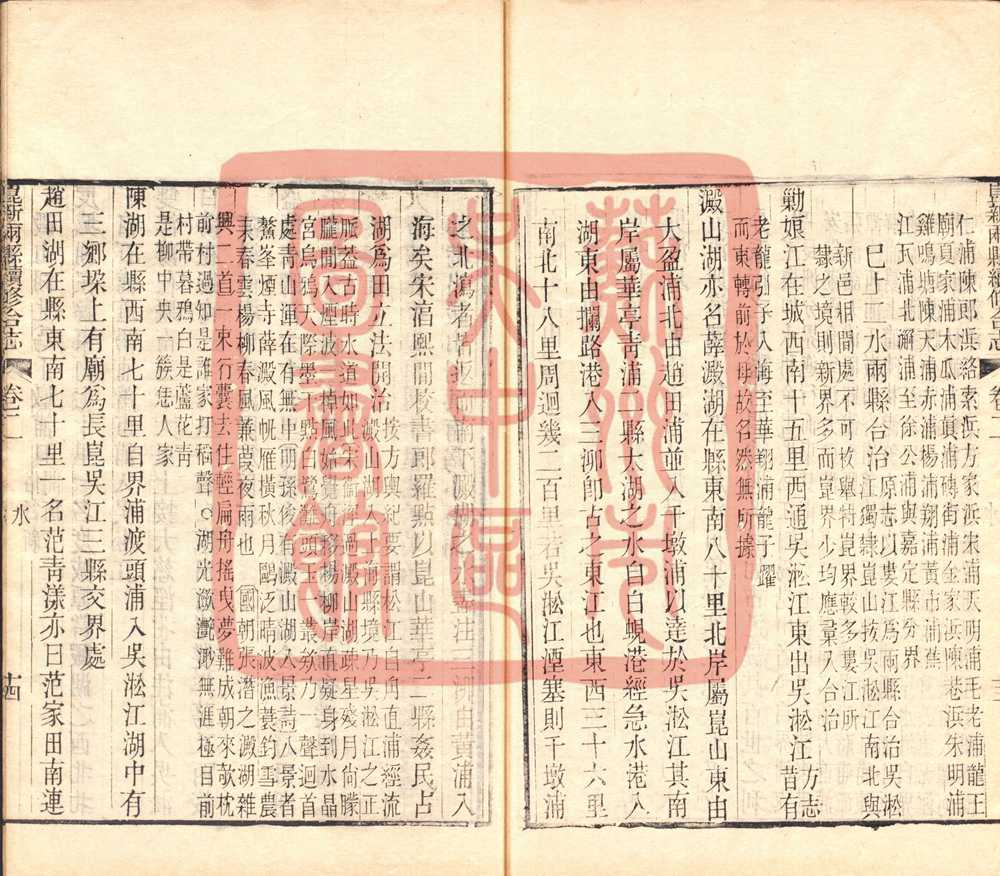 崑新兩縣續修合志
仁浦陳郎浜絡索浜方家浜宋浦天明浦毛老浦龍王
廟夏家浦木瓜浦真浦磚街浦金家浜陳巷浜朱明浦
雞鳴塘陳天浦大赤浦楊浦翔浦黃市浦蕉
江瓦浦北澥浦至徐公浦與嘉定縣分界
已上二水兩縣合治原志以婁江爲兩縣合治吳淞
江獨隸崑山按吳淞江南北與
新邑相間處不可枚舉特崑界較多婁江所
隸之境則新界多而崑界少均應彙入合治
勦娘江在城西南十五里西通吳淞江東出吳淞江昔有
方志
老龍引子入海至華翔浦龍子躍
而東轉前於母故名然無所據
澱山湖亦名薛澱湖在縣東南八十里北岸屬崑山東由
大盈浦北由趙田浦並入千墩浦以達於吳淞江其南
岸屬華亭青浦二縣太湖之水自白蜆港經急水港入
湖東由攔路港入三泖即古之東江也東西三十六里
南北十八里周迴幾二百里若吳淞江湮塞則千墩浦
之北瀉者皆南下澱湖之水注三泖由黃浦入
海矣宋淳熙間校書郎羅點以崑山華亭二縣姦民占
湖爲田立法開治按方輿紀要謂松江自甪直浦經流
澱山湖入上海縣境乃吳淞江之正
脈蓋古時水道如此宋過澱山湖疎星殘月尚朦
朧閒入煙波棹風始覺舟移楊柳岸直疑身到水晶
宮烏鴉天際墨千點白鷺灘頭玉一叢欸乃一聲迴首
處青山渾在有無中明孫俊有澱山湖八景詩八景者
鰲峯煙寺薛澱風帆雁橫秋月鷗泛晴波漁蓑釣雪農
耒春雲楊柳春風蒹葭夜雨也國朝張潛之澱湖雜
興二首一束行囊去住輕扁舟搖曳夢難成朝來欹枕
前村過知是誰家打稻聲○湖光瀲灔澱無涯極目前
村帶暮鴉白是蘆花青
是柳中央一簇恁人家
陳湖在縣西南七十里自界浦渡頭浦入吳淞江湖中有
三鄉垛上有廟爲長崑吳江三縣交界處
趙田湖在縣東南七十里一名范青漾亦曰范家田南連
崑新兩縣續修合志 卷二 水 十四
蘇州市
文史圖書館